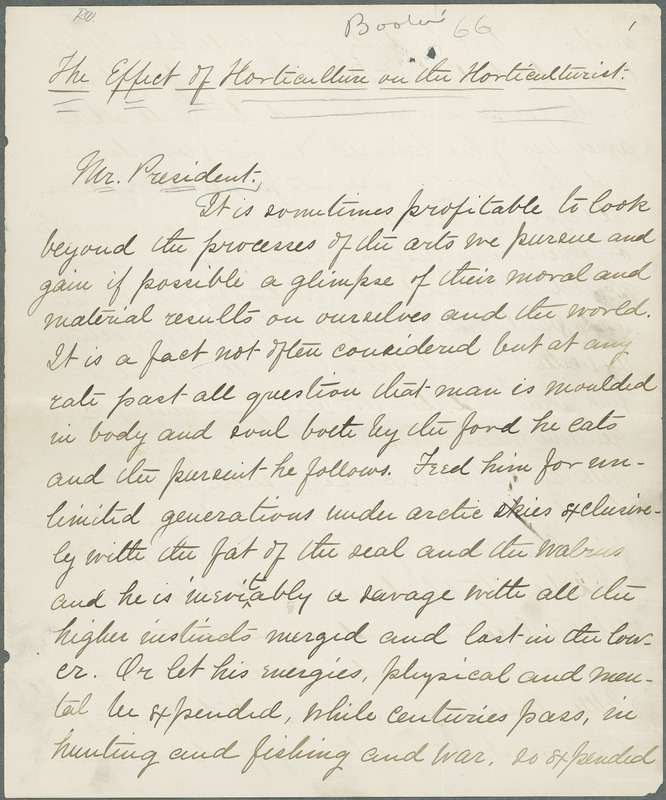 R.W.
66
1
The Effect of Horticulture on the Horticulturist.
Mr. President.,
It is sometimes profitable to look
beyond the processes of the arts we pursue and
gain if possible a glimpse of their moral and
material results on ourselves and the world.
It is a fact not often considered but at any
rate past all question that man is moulded
in body and soul both by the food he eats
and the pursuit he follows. Feed him for un-
limited generations under arctic skies exclusive-
ly with the fat of the seal and the walrus
and he is inevitably a savage with all the
higher instincts merged and lost in the low-
er. Or let his energies, physical and men-
tal be expended, while centuries pass, in
hunting and fishing and war, so expended